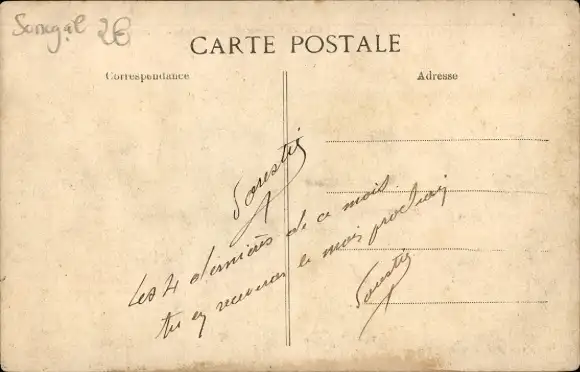 Senegal 2€
CARTE POSTALE
Correspondance
Adresse
Les 4 dernières de ce mois.
tu en recevras le mois prochain